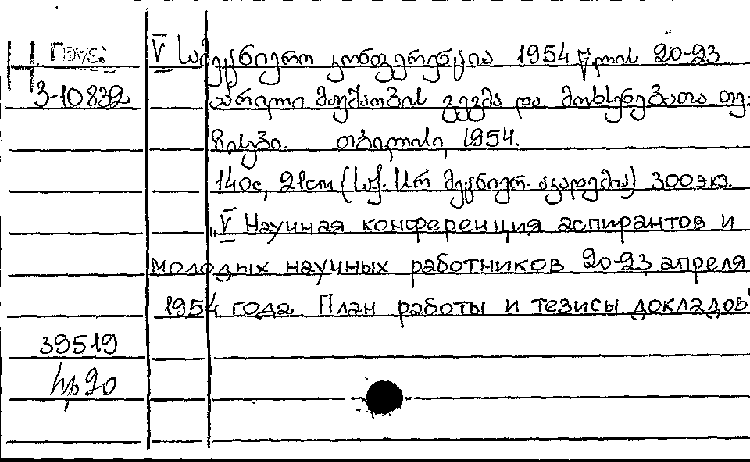 Н Груз.
3-10832
V სამეცნიერო კონფერენცია 1954 წლის 20-23
აპრილი მუშაობის გეგმა და მოხსენებათა თე-
ზისები. თბილისი, 1954.
140с, 21cm (საქ. სსრ მეცნიერ. აკადემია) 300 экз.
„V Научная конференция аспирантов и
молодых научных работников 20-23 апреля
1954 года. План работы и тезисы докладов"
39519